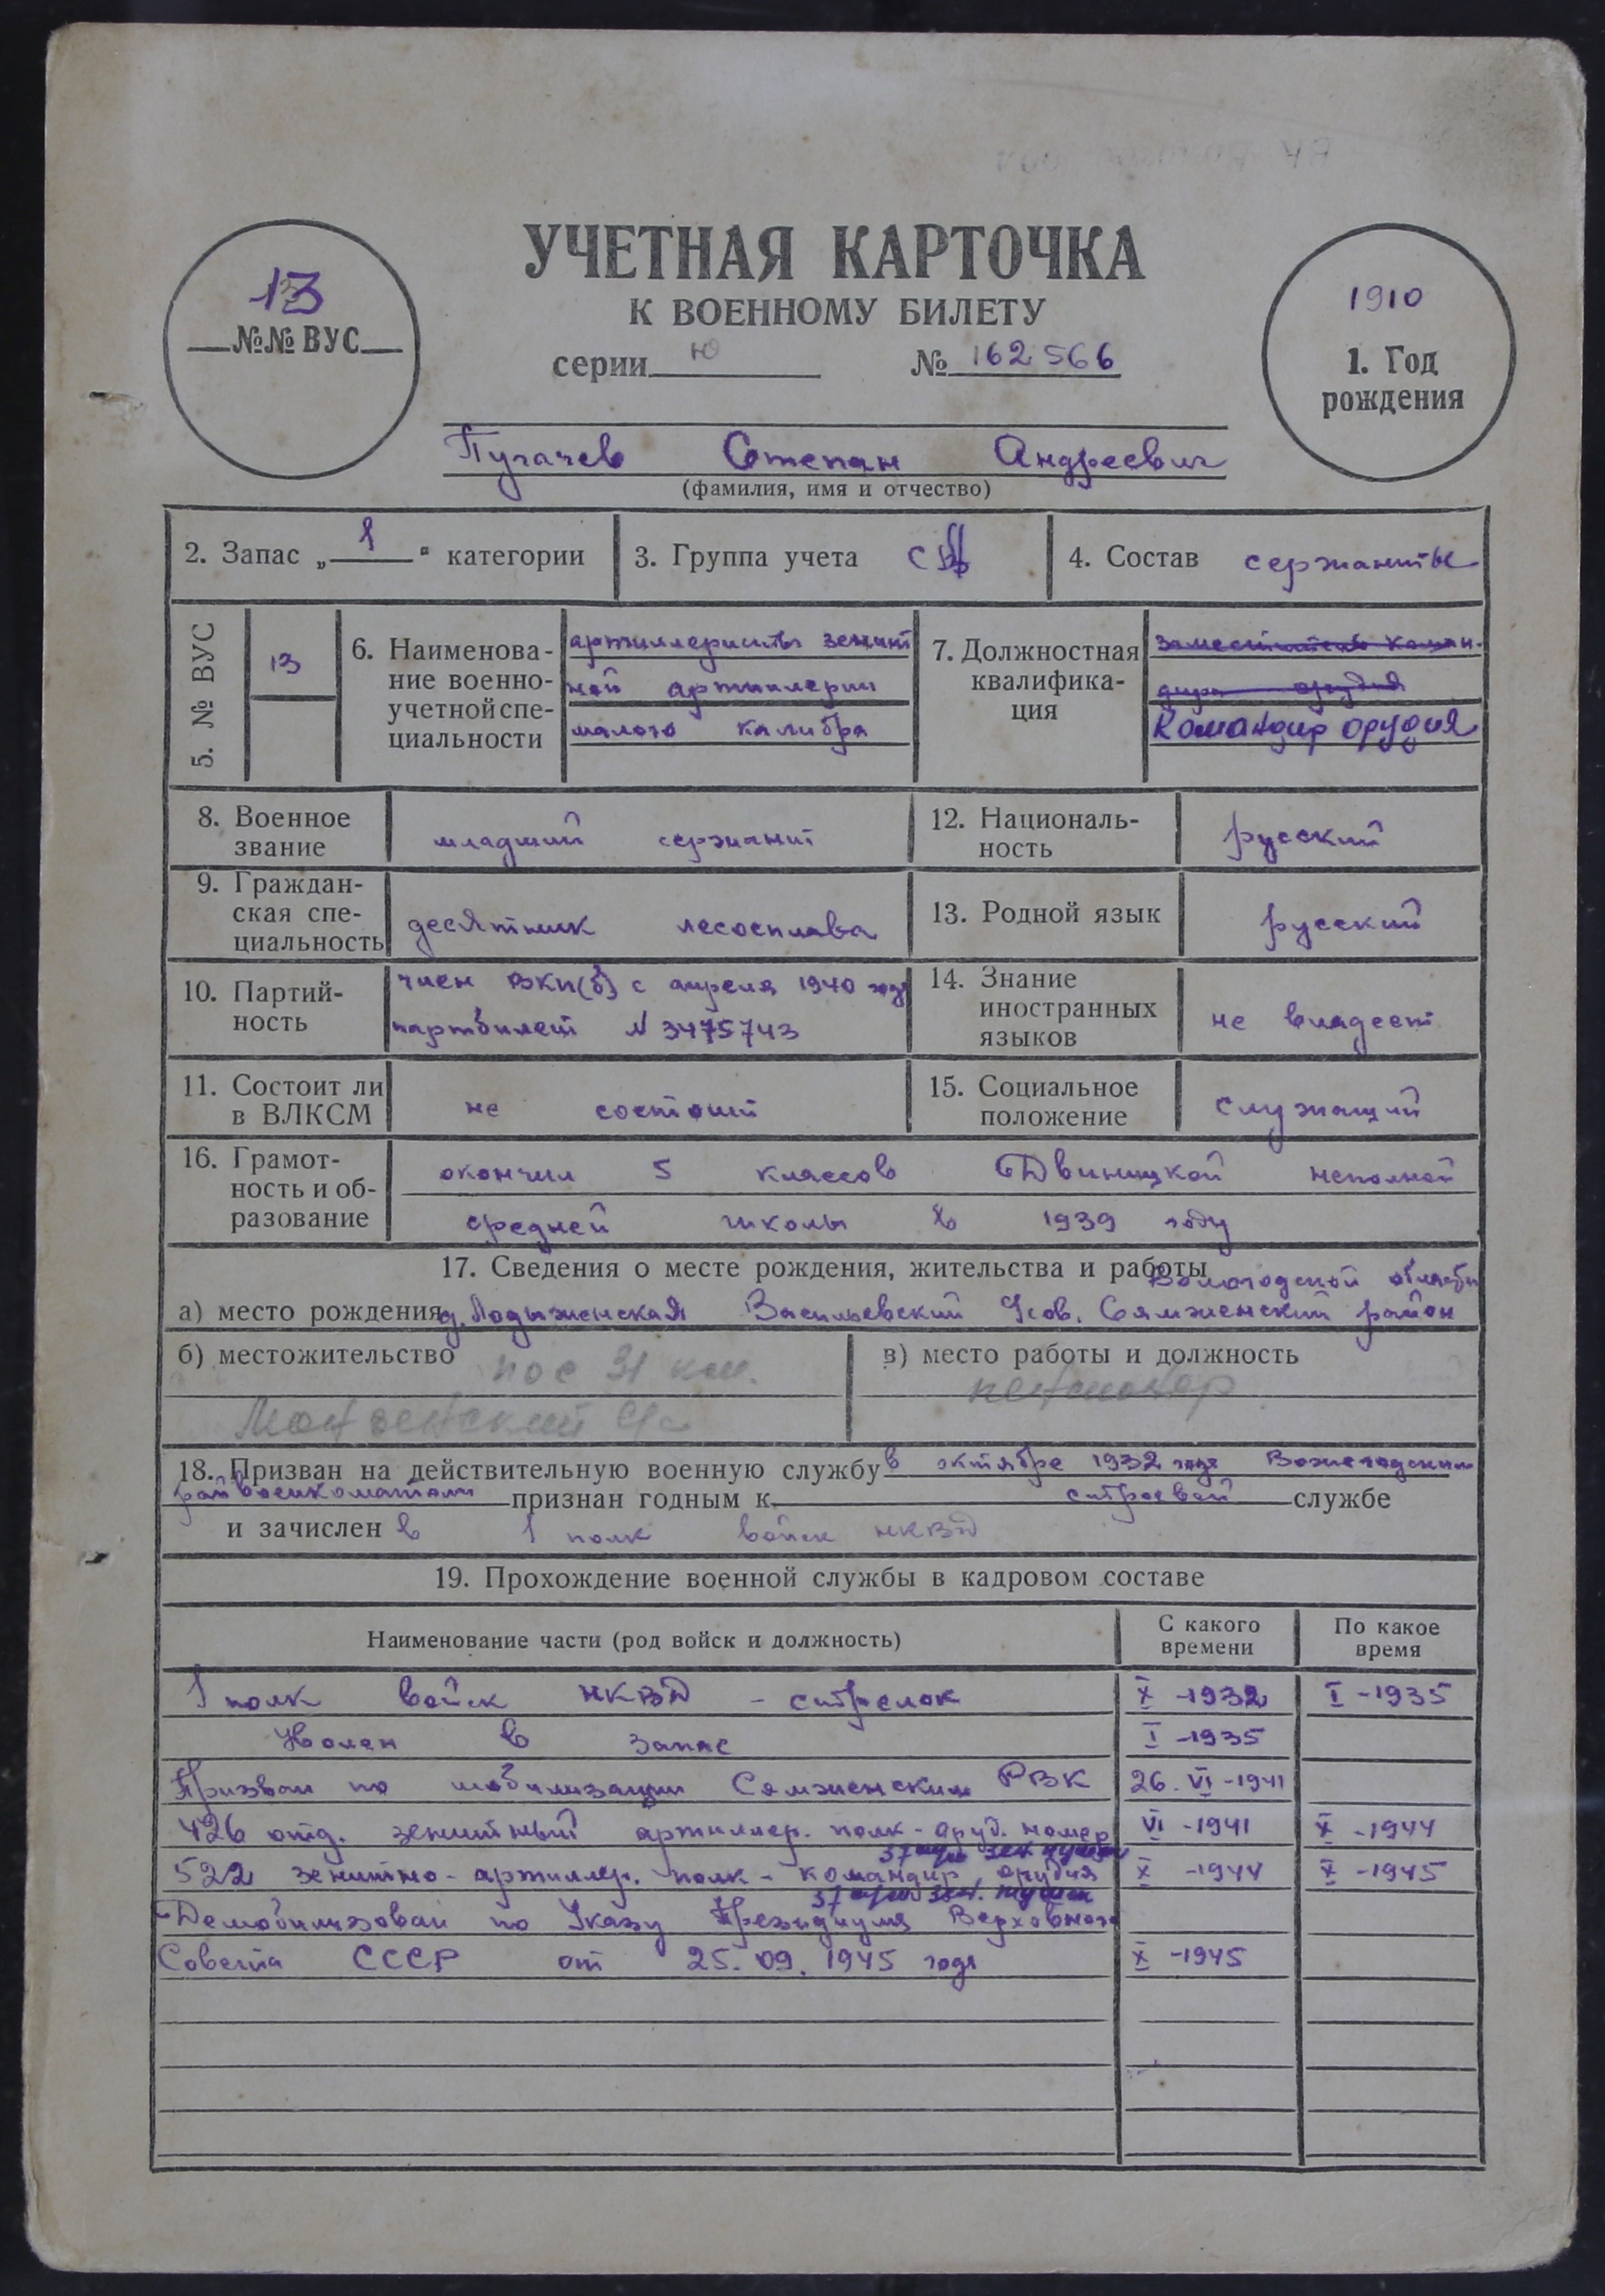 УЧЕТНАЯ КАРТОЧКА
К ВОЕННОМУ БИЛЕТУ
серии ю № 162566
13
№№ ВУС
1910
1. Год
рождения
Пугачев Степан Андреевич
(фамилия, имя и отчество)
2. Запас „ 1 " категории
3. Группа учета СВ
4. Состав сержанты
5. № ВУС
13
6. Наименова-
ние военно-
учетной спе-
циальности
артиллеристы зенит
ной артиллерии
малого калибра
7. Должностная
квалифика-
ция
заместитель коман-
дира орудия
Командир орудия
8. Военное
звание
младший сержант
12. Националь-
ность
русский
9. Граждан-
ская спе-
циальность
десятник лесосплава
13. Родной язык
русский
10. Партий-
ность
член ВКП(б) с апреля 1940 года
партбилет N 3475743
14. Знание
иностранных
языков
не владеет
11. Состоит ли
в ВЛКСМ
не состоит
15. Социальное
положение
служащий
16. Грамот-
ность и об-
разование
окончил 5 классов Двиницкой неполной
средней школы в 1939 году
17. Сведения о месте рождения, жительства и работы
Вологодской области
а) место рождения д. Лодыженская Васильевский с/сов. Сямженский район
б) местожительство пос 31 км.
в) место работы и должность
пенсионер
18. Призван на действительную военную службу в октябре 1932 года Вожегодским
райвоенкоматом признан годным к строевой службе
и зачислен в 1 полк войск НКВД
19. Прохождение военной службы в кадровом составе
Наименование части (род войск и должность)
С какого
времени
По какое
время
1 полк войск НКВД - стрелок X -1932 I -1935
Уволен в запас I -1935
Призван по мобилизации Сямженским РВК 26. VI -1941
426 отд. зенитный артиллер. полк - оруд. номер VI -1941 X -1944
37 м/м зен. пушки
522 зенитно-артиллер. полк - командир орудия X -1944 X -1945
37 м/м зен. пушки
Демобилизован по Указу Президиума Верховного
Совета СССР от 25. 09. 1945 года X -1945